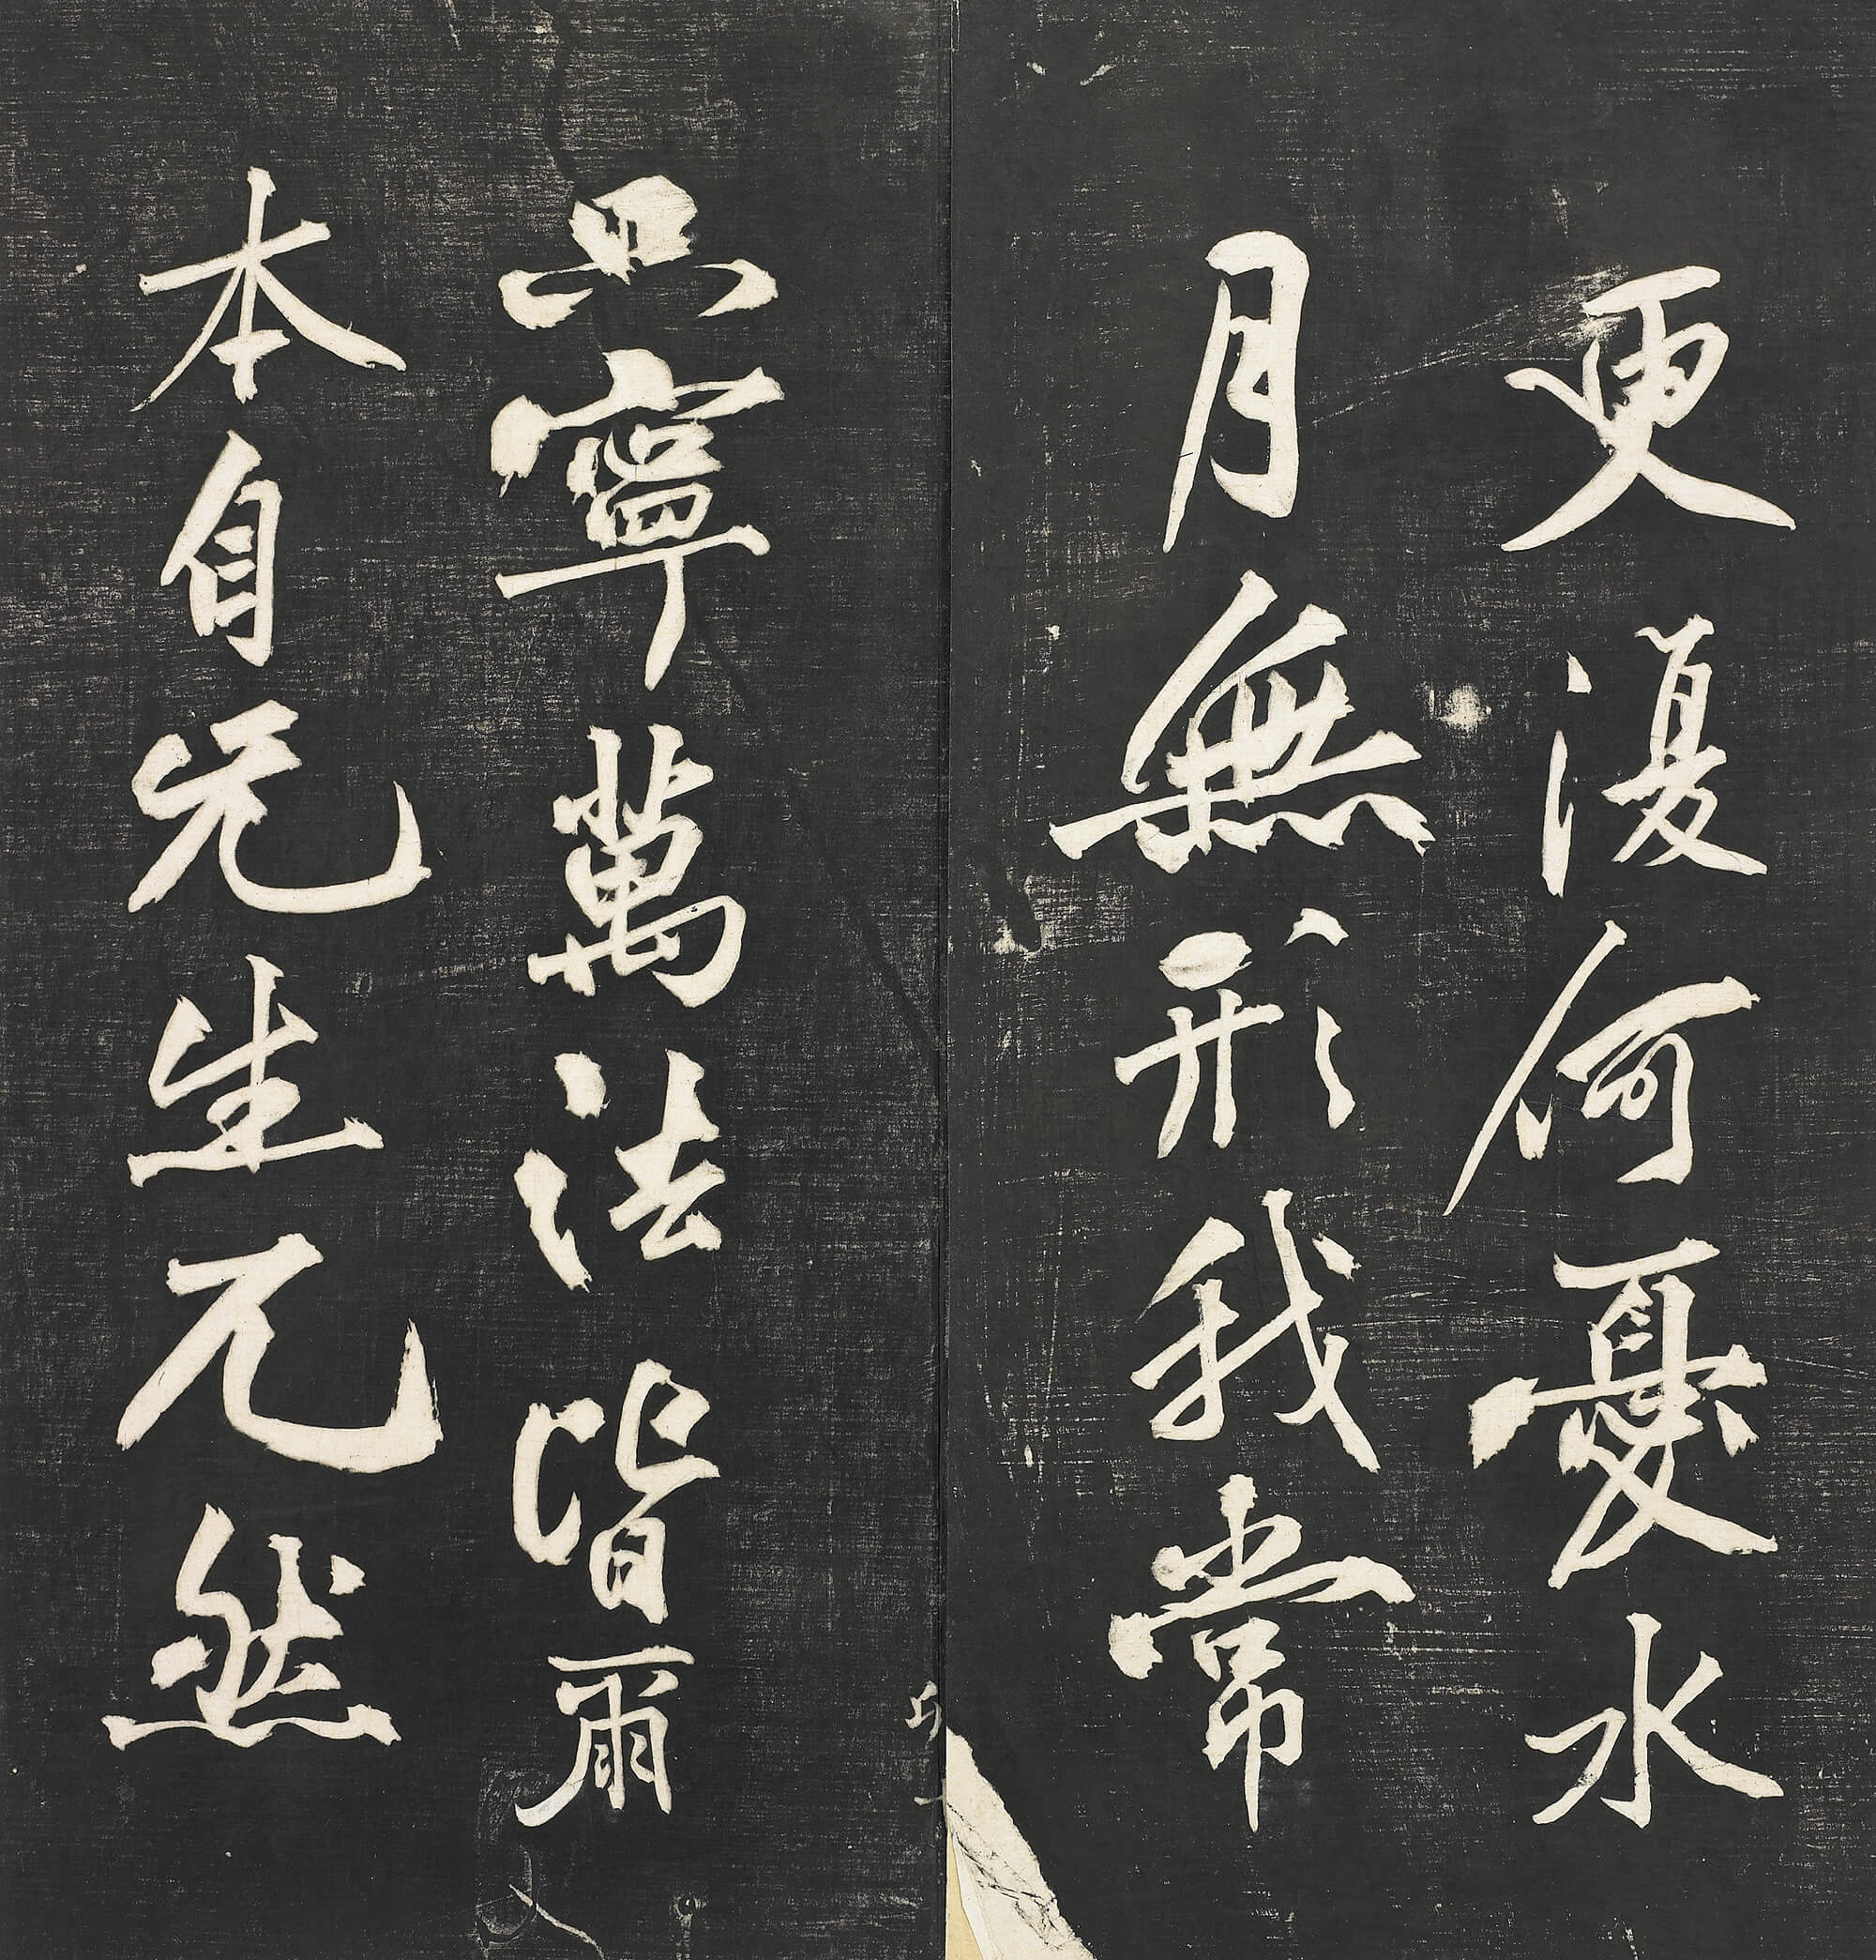 更復何憂水
月無形我常
只寧萬法皆爾
本自无生兀然